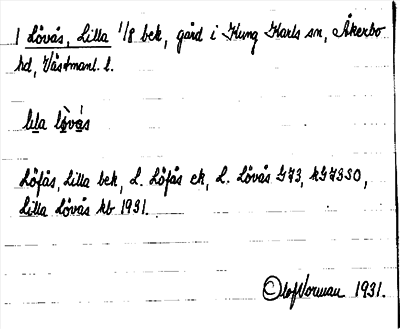 1 Lövås, Lilla 1/8 bek, gård i Kung Karls sn, Åkerbo
hd, Västmanl. l.
lila lòvás
Löfås, Lilla bek, L. Löfås ek, L. Lövås G73, kG7330,
Lilla Lövås kb 1931.
Olof Norman 1931.